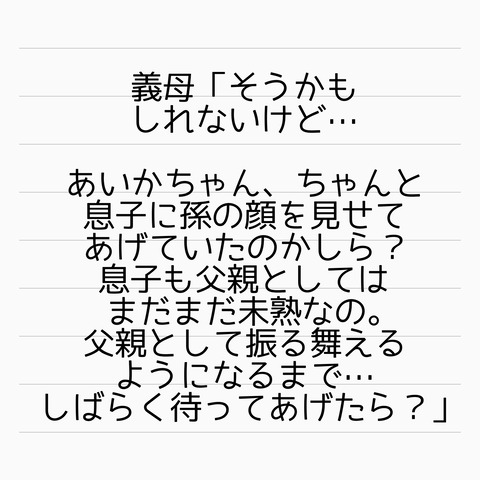 義母「そうかも
しれないけど…
あいかちゃん、ちゃんと
息子に孫の顔を見せて
あげていたのかしら？
息子も父親としては
まだまだ未熟なの。
父親として振る舞える
ようになるまで…
しばらく待ってあげたら？」